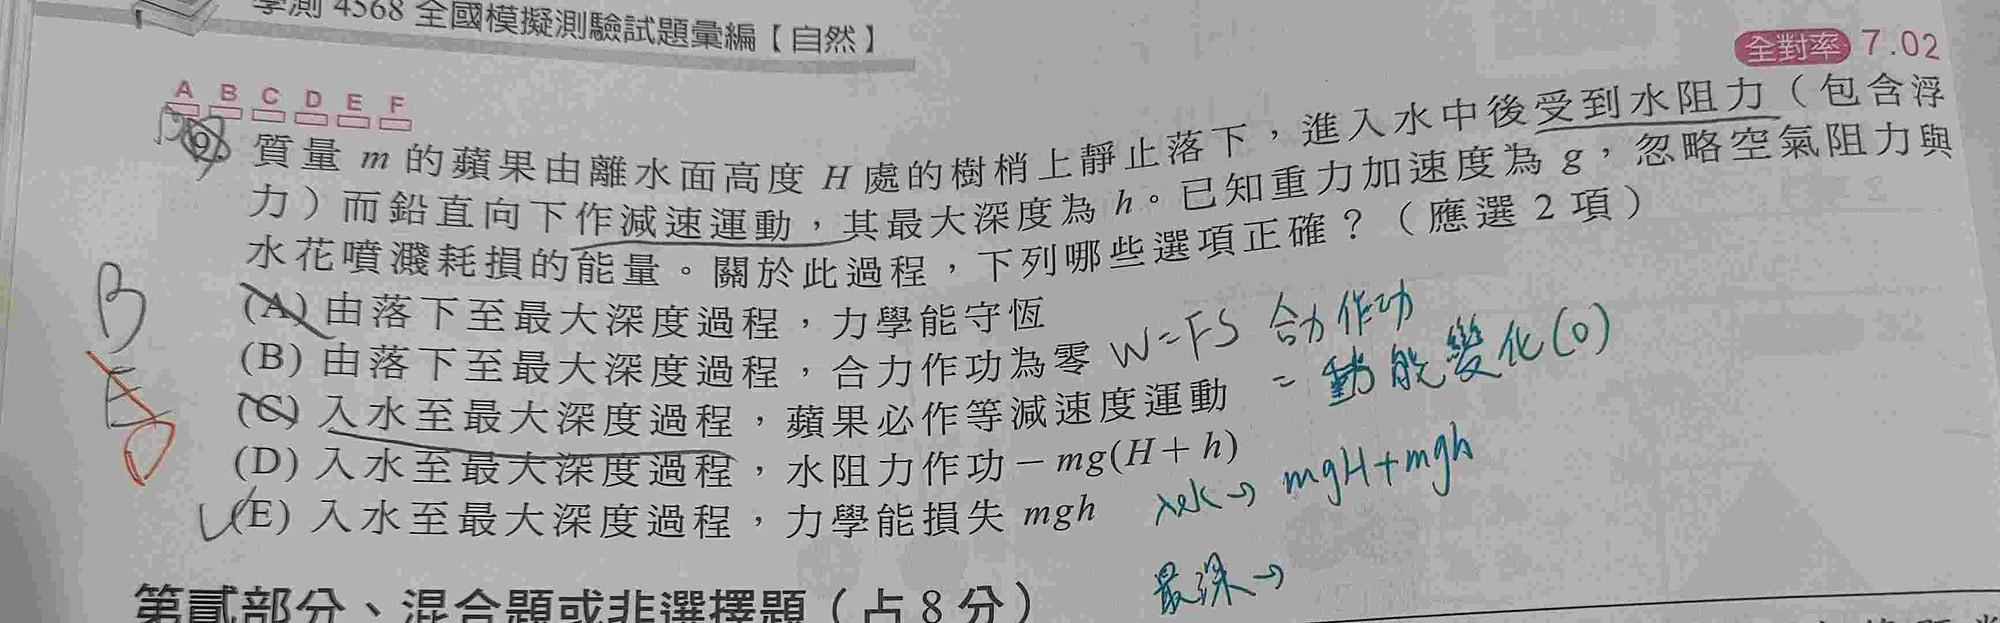 學測 4568 全國模擬測驗試題彙編【自然】
全對率 7.02
A B C D E F
9. 質量 m 的蘋果由離水面高度 H 處的樹梢上靜止落下，進入水中後受到水阻力（包含浮
力）而鉛直向下作減速運動，其最大深度為 h。已知重力加速度為 g，忽略空氣阻力與
水花噴濺耗損的能量。關於此過程，下列哪些選項正確？（應選 2 項）
(A) 由落下至最大深度過程，力學能守恆
(B) 由落下至最大深度過程，合力作功為零 W=FS 合力作功
=動能變化(0)
(C) 入水至最大深度過程，蘋果必作等減速度運動
(D) 入水至最大深度過程，水阻力作功－mg(H＋h)
(E) 入水至最大深度過程，力學能損失 mgh
入水→ mgH+mgh
最深→
B
E
D
第貳部分、混合題或非選擇題（占 8 分）